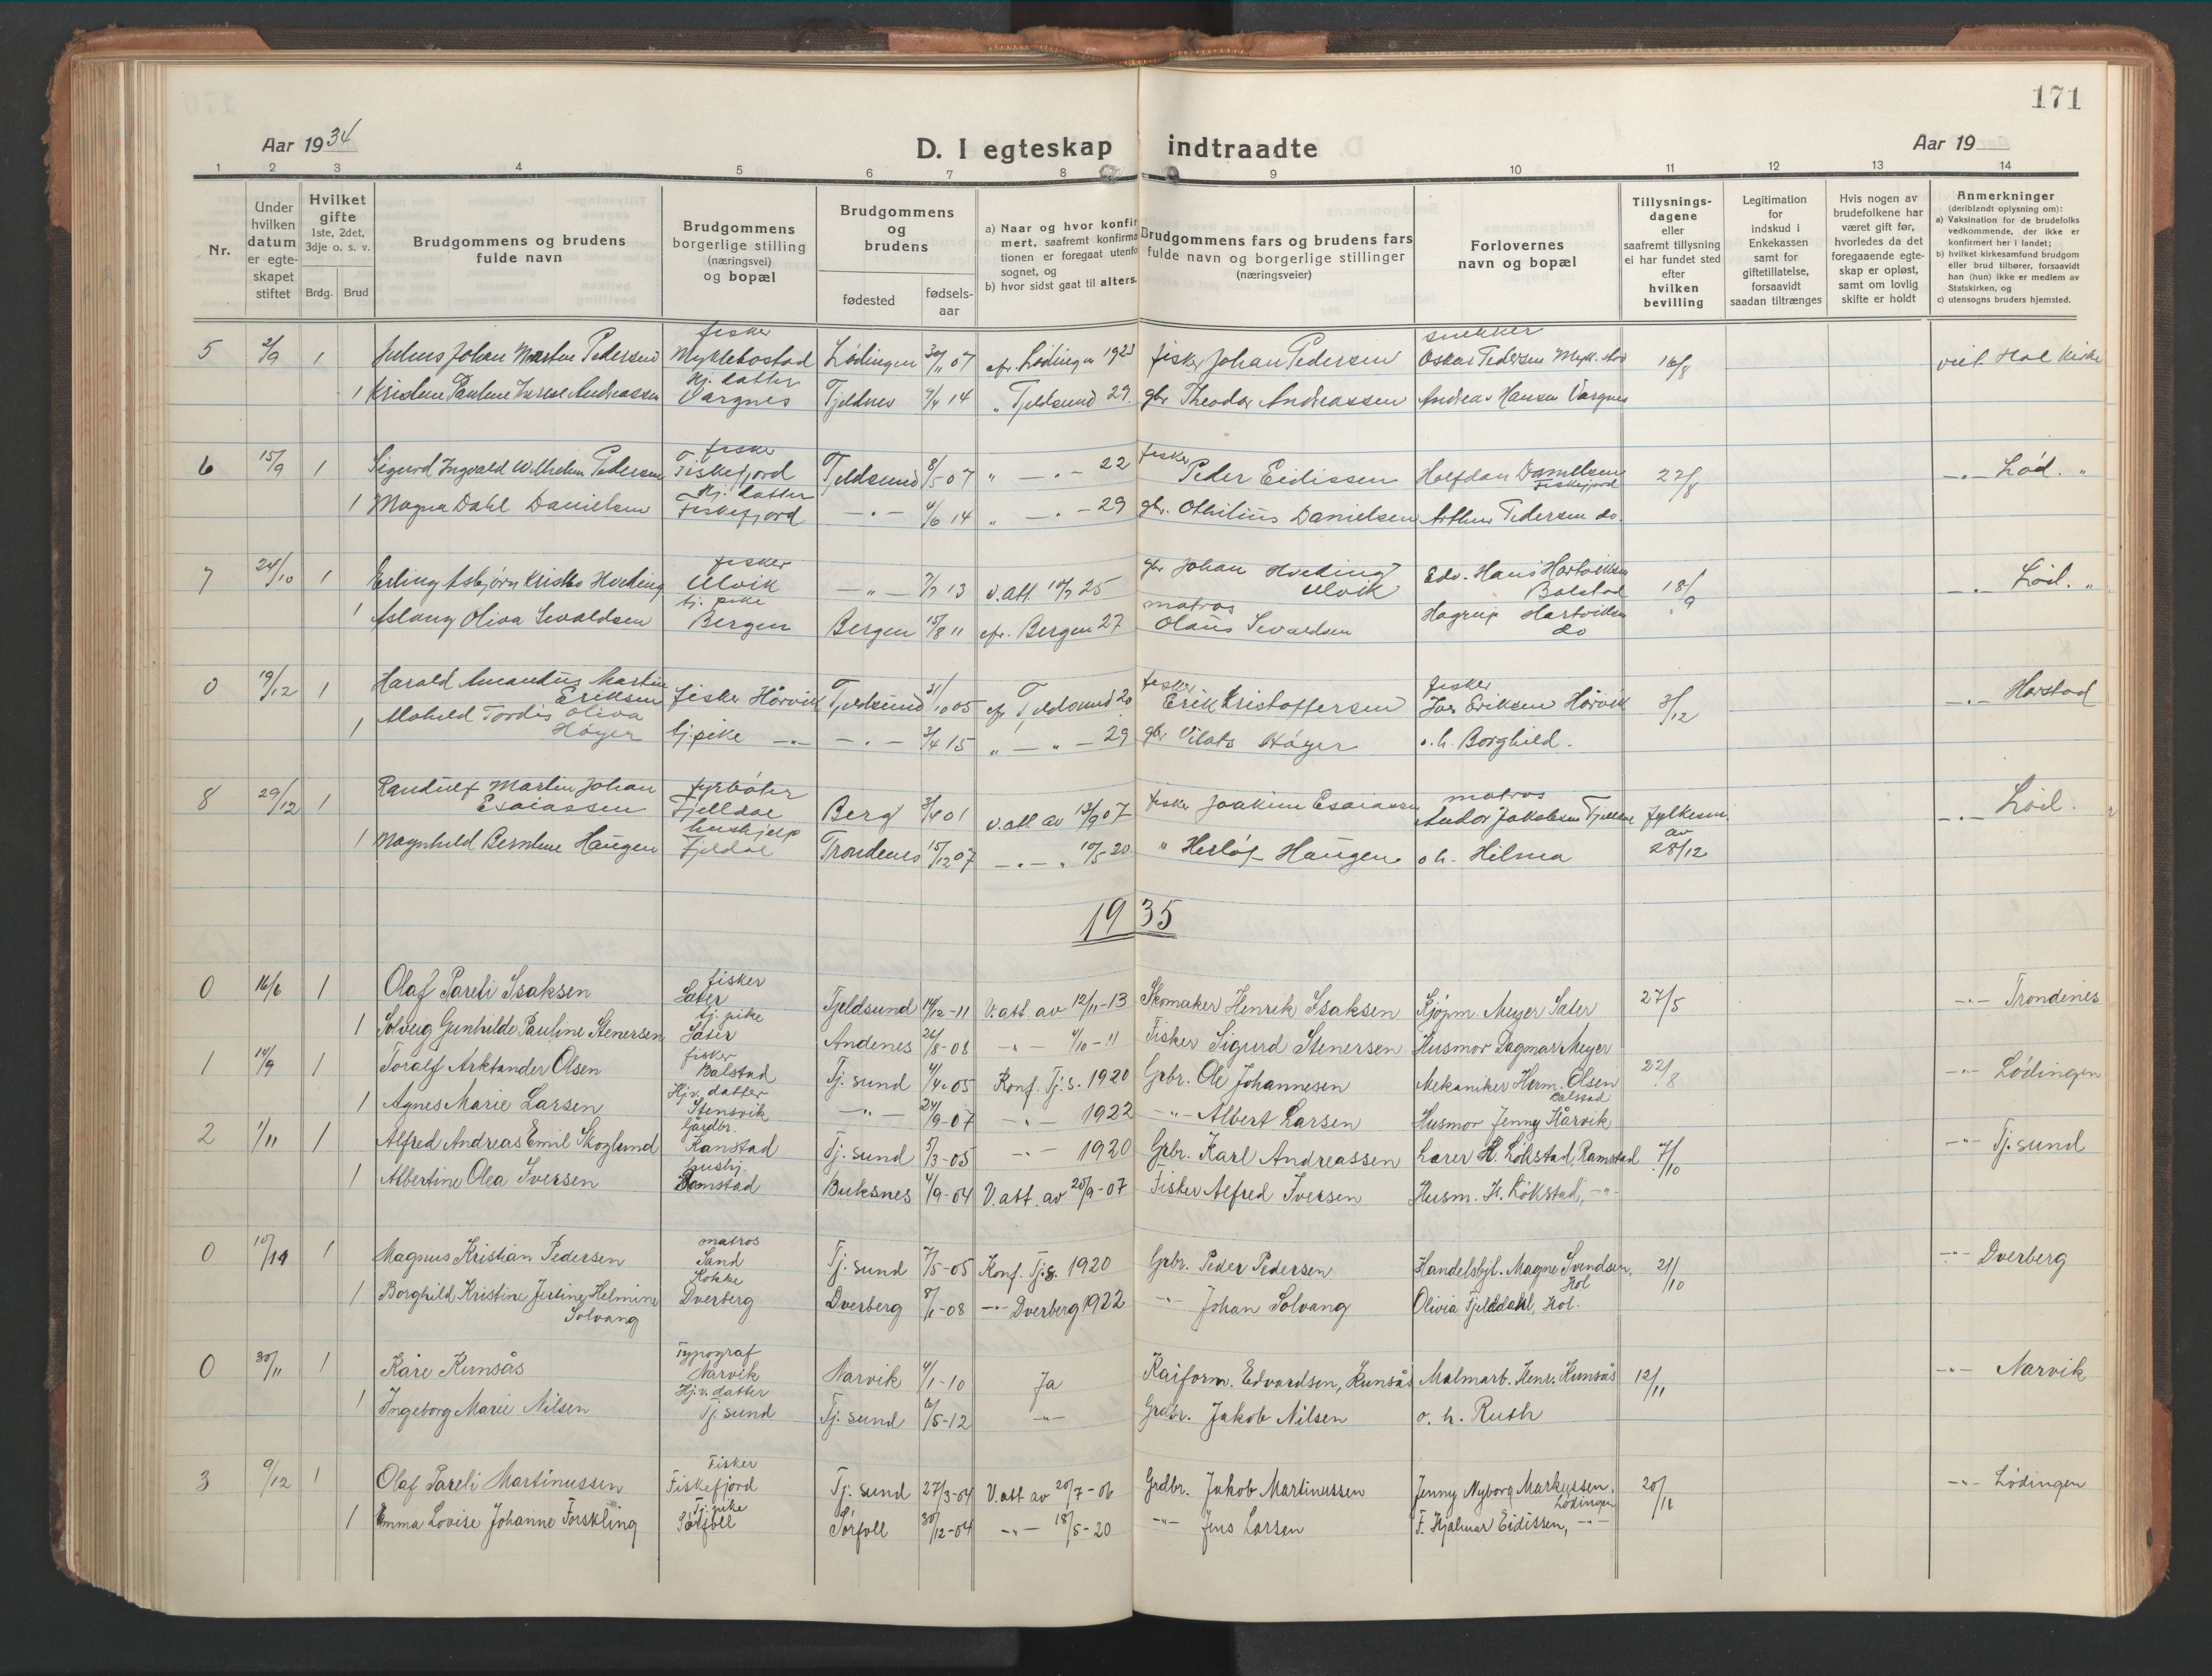 171
Aar 1934
D. I egteskap indtraadte
Aar 19
1 2 3 4 5 6 7 8 9 10 11 12 13 14
Nr.
Under hvilken datum er egte-skapet stiftet
Hvilket gifte 1ste, 2det, 3dje o. s. v.
Brdg. Brud
Brudgommens og brudens fulde navn
Brudgommens borgerlige stilling (næringsvei) og bopæl
Brudgommens og brudens
fødested
fødsels-aar
a) Naar og hvor konfir
mert, saafremt konfirma
tionen er foregaat utenfo
sognet, og
b) hvor sidst gaat til alters.
Brudgommens fars og brudens fars fulde navn og borgerlige stillinger (næringsveier)
Forlovernes navn og bopæl
Tillysnings-dagene eller saafremt tillysning ei har fundet sted efter hvilken bevilling
Legitimation for indskud i Enkekassen samt for giftetillatelse, forsaavidt saadan tiltrænges
Hvis nogen av brudefolkene har været gift før, hvorledes da det foregaaende egte-skap er opløst, samt om lovlig skifte er holdt
Anmerkninger
(deriblandt oplysning om):
a) Vaksination for de brudefolks vedkommende, der ikke er konfirmert her i landet;
b) hvilket kirkesamfund brudgom eller brud tilhører, forsaavidt han (hun) ikke er medlem av Statskirken, og
c) utensogns bruders hjemsted.
5 2/9 1 Julius Johan Martin Pedersen fisker Myklebostad Lødingen 30/11 07 efr. Lødingen 1923 fisker Johan Pedersen snekker Oskar Pedersen Mykl.stad 16/8 viet Hol Kirke
1 Kristine Pauline Therese Andreassen Hj. datter Vargnes Tjeldnes 9/4 14 " Tjeldsund 29. gbr Theodor Andreassen Andreas Hansen Vargnes
6 15/9 1 Sigurd Ingvald Wilhelm Pedersen fisker Fiskefjord Tjeldsund 8/5 07 " — " — 22 fisker Peder Eidissen Halfdan Danielsen Fiskefjord 22/8 —"— Lød. "
1 Magna Dahl Danielsen Hj. datter Fiskefjord —"— 4/6 14 " —"— 29 gbr. Othilius Danielsen Arthur Pedersen do.
7 24/10 1 Erling Asbjørn Kristo Hveding fisker Ulvik —"— 7/7 13 v.att 10/7 25 gbr Johan Hveding Ulvik Edv. Hans Hartviksen Balstad 18/9 —"— Lød. "
1 Aslaug Oliva Sevaldsen tj. pike Bergen Bergen 15/8 11 efr. Bergen 27 matros Olaus Sevaldsen Hagrup Hartviksen do "
0 19/12 1 Harald Amandus Martin Eriksen fisker Hårvik Tjeldsund 31/10 05 efr Tjeldsund 20 fisker Erik Kristoffersen fisker Ivar Eriksen Hårvik 3/12 —"— Harstad
1 Mohild Tordis Oliva Høyer tj. pike —"— —"— 3/4 15 " — " — 29 gbr Vilats Høyer o.h. Borghild.
8 29/12 1 Randulf Martin Johan Esaiassen fyrbøter Fjelldae Berg 3/4 01 v.att av 13/9 07 fisker Joakim Esaiassen matros Andor Jakobsen Fjelldae fylkesm. av 28/12 —"— Lød.
1 Magnhild Berntine Haugen hushjelp Fjeldal Trondenes 15/12 07 —"— " 10/5 20 " Herløf Haugen o h. Hilma
1935
0 16/6 1 Olaf Pareli Isaksen fisker Sater Tjeldsund 14/12-11 V. att. av 12/11-13 Skomaker Henrik Isaksen Kjøpm. Meyer Sater 27/5 —"— Trondenes
1 Solveig Gunhilde Pauline Stenersen tj. pike Sater Andenes 26/8-08 —"— 4/10-11 Fisker Sigurd Stenersen Husmor Dagmar Meyer
1 14/9 1 Toralf Arktander Olsen fisker Balstad Tj. sund 4/4-05 Konf. Tj. s. 1920 Grbr. Ole Johannesen Mekaniker Herm. Olsen Balstad 22/8 —"— Lødingen
1 Agnes Marie Larsen Hj.v. datter Stensvik —"— 24/9-07 —"— 1922 —"— Albert Larsen Husmor Jenny Hårvik
2 1/11 1 Alfred Andreas Emil Skoglund Gårdbr. Ranstad Tj. sund 5/3-05 —"— 1920 Grbr. Karl Andreassen Lærer H. Løkstad, Ramstad 7/10 —"— Tj. sund
1 Albertine Olea Iversen hushj. Ramstad Buksnes 4/9-04 V. att. av 20/9-07 Fisker Alfred Iversen Husm. H. Løkstad, —"—
0 10/11 1 Magnus Kristian Pedersen matros Sand Tj. sund 7/5-05 Konf. Tj.s. 1920 Grbr. Peder Pedersen Handelsbtj. Magne Svendsen, Hol 21/10 —"— Dverberg
1 Borghild Kristine Jertine Helmine Solvang Kokke Dverberg Dverberg 8/1-08 —"— Dverberg 1922 —"— Johan Solvang Olivia Fjelddahl, Hol.
0 30/11 1 Kåre Kunsås Typograf Narvik Narvik 4/1-10 Ja Kaiform. Edvardsen, Kunsås Malmarb. Henr. Kunsås 12/11 —"— Narvik
1 Ingeborg Marie Nilsen Hj.v. datter Tj. sund Tj. sund 6/5-12 —"— Grdbr. Jakob Nilsen o. h. Ruth
3 9/12 1 Olaf Pareli Martinussen Fisker Fiskefjord Tj. sund 27/3-04 V. att av 20/7-06 Grdbr. Jakob Martinussen Jenny Nyborg Markussen, Lødingen 20/11 —"— Lødingen
1 Emma Lovise Johanne Forskling Tj. pike Sørfoll Sørfoll 30/12-04 —"— 18/5-20 —"— Jens Larsen F. Hjalmar Eidissen, —"—